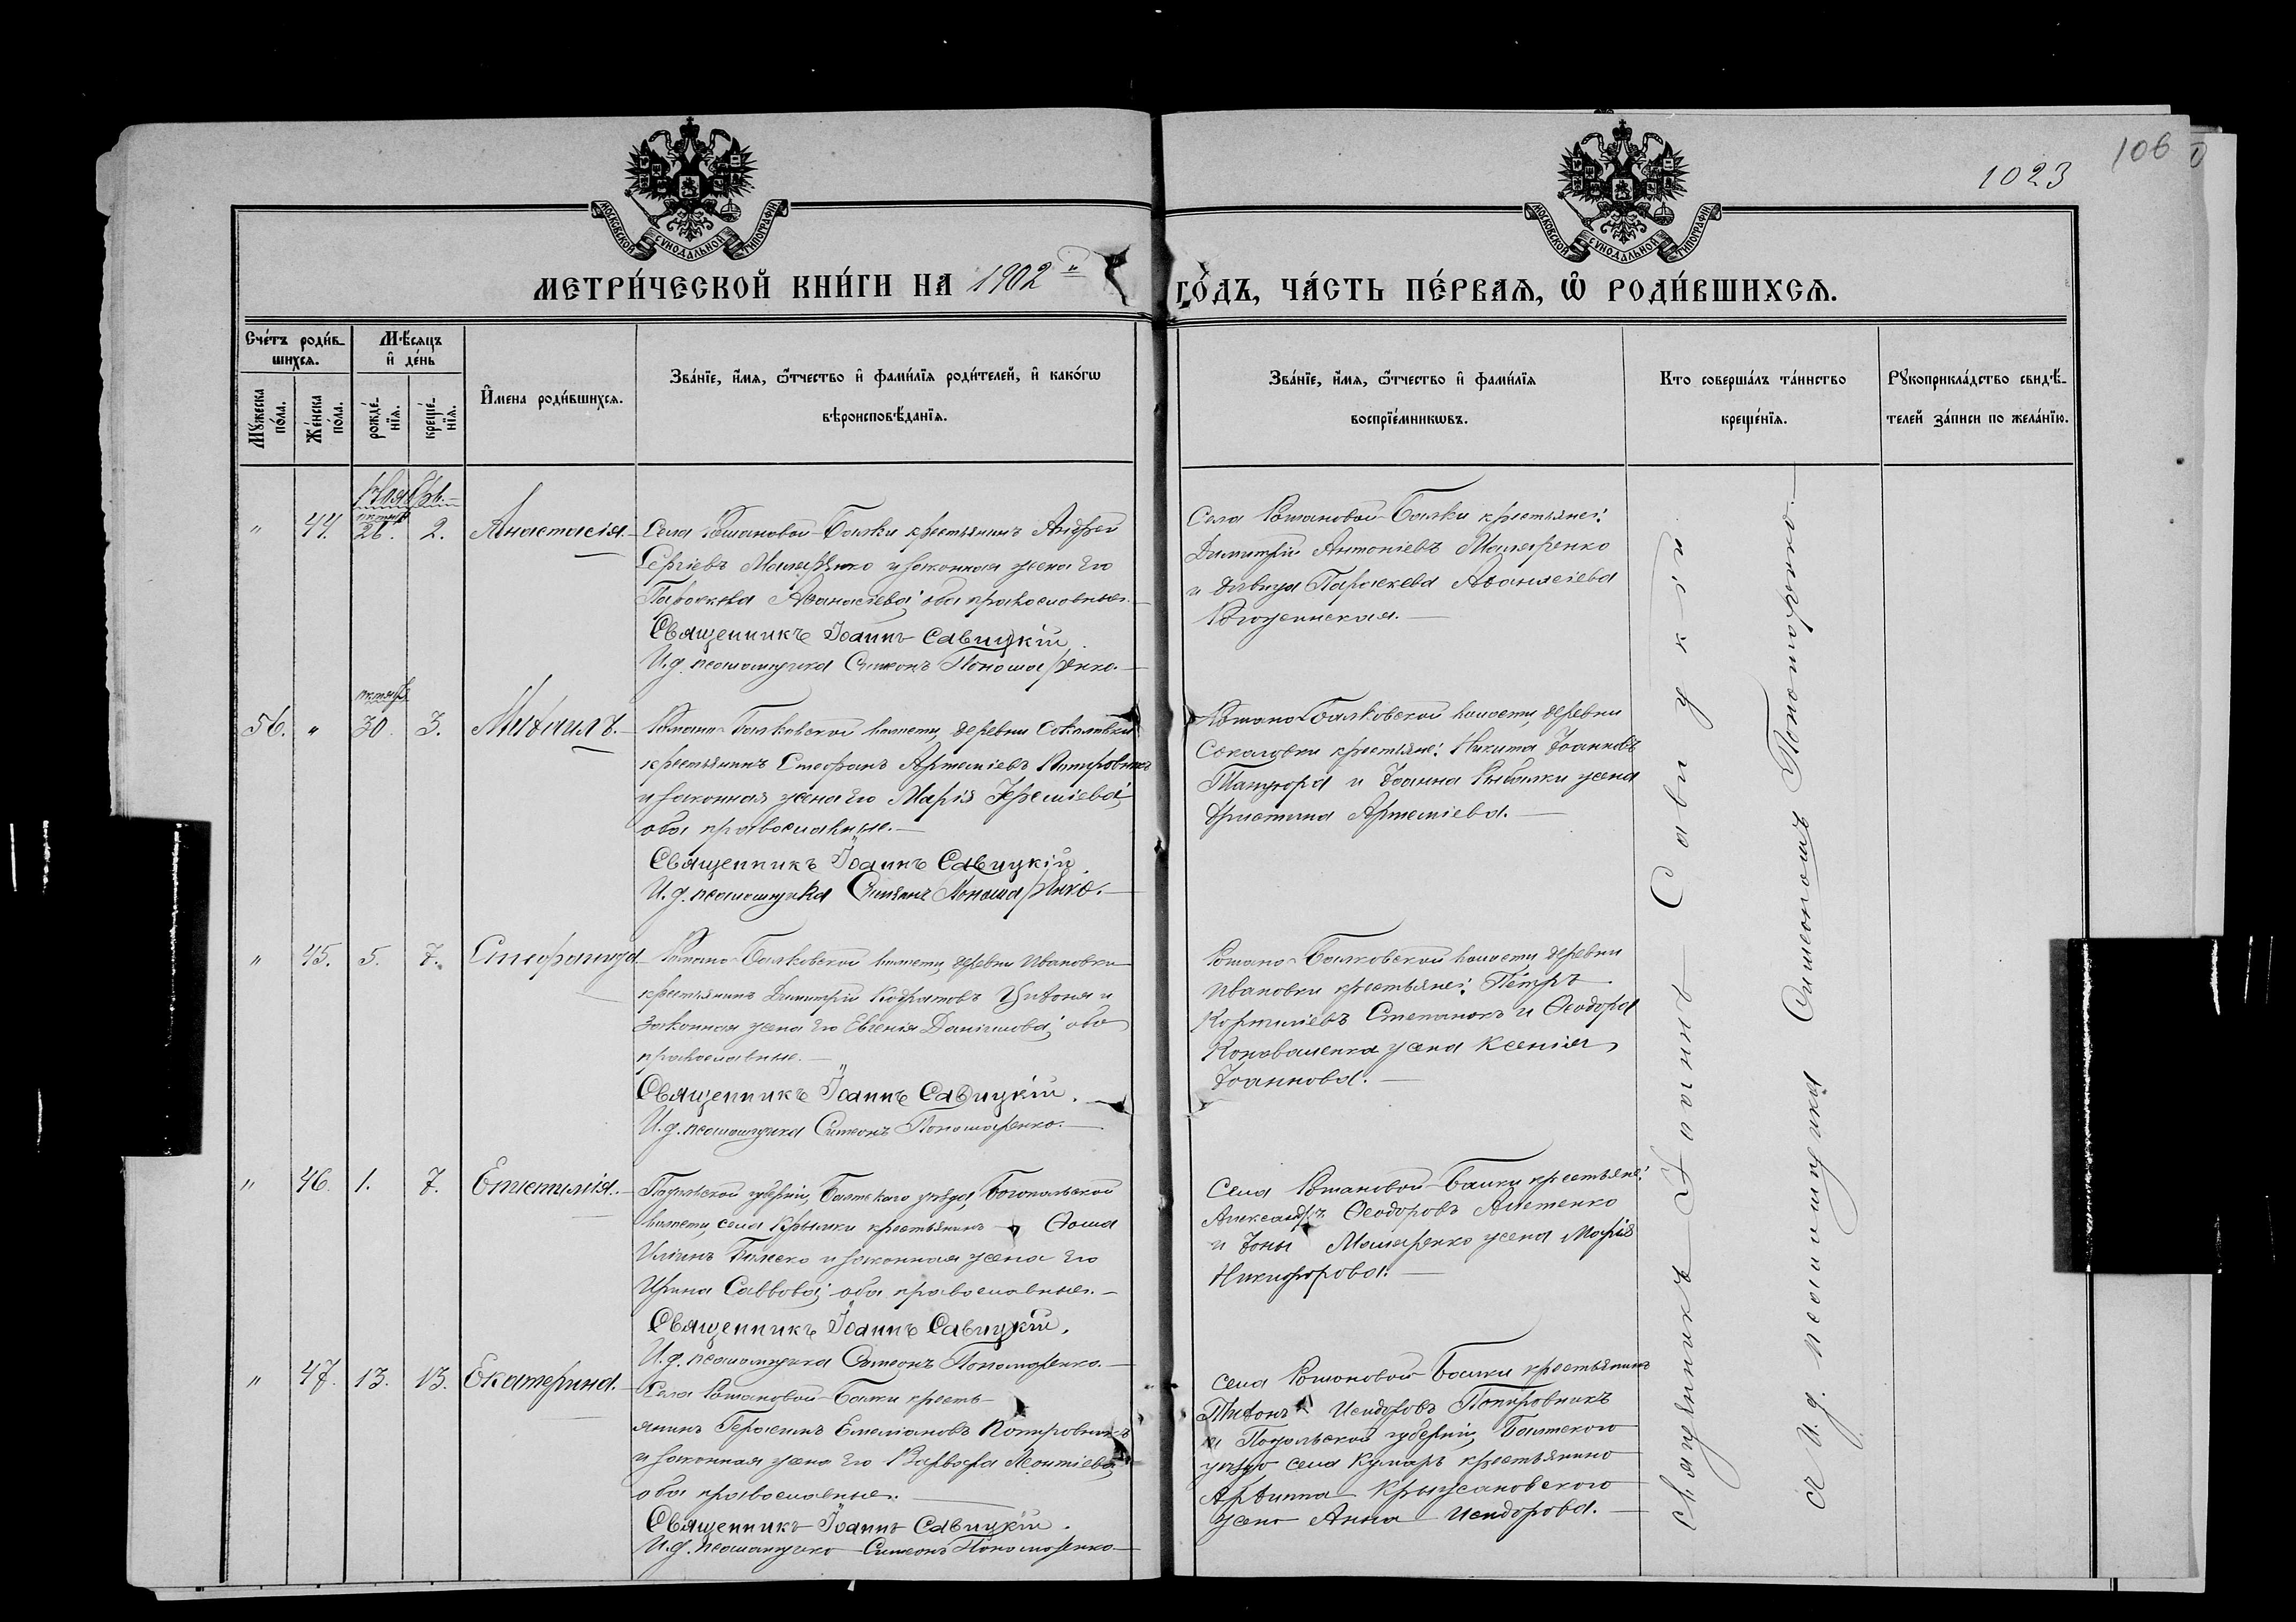 1023
106
МОСКОВСКОЙ СѴНОДАЛЬНОЙ ТИПОГРАФІИ
МОСКОВСКОЙ СѴНОДАЛЬНОЙ ТИПОГРАФІИ
МЕТРИ́ЧЕСКОЙ КНИ́ГИ НА 1902й
ГО́ДЪ, ЧА́СТЬ ПЕ́РВАѦ, Ѡ҆ РОДИ́ВШИХСѦ.
Сче́тъ роди́в-
шихсѧ.
Мѣ́сѧцъ
и҆ де́нь
Мꙋ́жеска
по́ла.
Же́нска
по́ла.
рожде́-
нїѧ.
креще́-
нїѧ.
И҆мена роди́вшихсѧ.
Зва́нїе, и҆́мѧ, ѻ҆́тчество и҆ фами́лїѧ роди́телей, и҆ како́гѡ
вѣроисповѣ́данїѧ.
Зва́нїе, и҆́мѧ, ѻ҆́тчество и҆ фами́лїѧ
воспрїе́мникѡвъ.
Кто соверша́лъ та́инство
креще́нїѧ.
Рꙋкоприкла́дство свидѣ́-
телей за́писи по жела́нїю.
Ноябрь.
октября
" 44. 26. 2. Анастасія.
Села Романовой-Балки крестьянинъ Андрей
Сергіевъ Маляренко и законная жена его
Параскева Аѳанасіева; оба православные.
Священникъ Іоаннъ Савицкій.
И.д. псаломщика Симеонъ Пономаренко.
Села Романовой-Балки крестьяне:
Димитрій Антоніевъ Маляренко
и девица Параскева Аѳанасіева
октября
56. " 30. 3. Михаилъ.
Романо-Балковской волости, деревни Соколовки
крестьянинъ Стефанъ Артеміевъ
и законная жена его Марія Іереміева;
оба православные.
Священникъ Іоаннъ Савицкій.
И.д. псаломщика Симеонъ Пономаренко.
Романо-Балковской волости, деревни
Соколовки крестьяне: Никита Іоанновъ
и Іоанна жена
Христина Артеміева.
" 45. 5. 7. Стефанида
Романо-Балковской волости, деревни Ивановки
крестьянинъ Димитрій Кодратовъ и
законная жена его Евгенія Даніилова; оба
православные.
Священникъ Іоаннъ Савицкій.
И.д. псаломщика Симеонъ Пономаренко.
Романо-Балковской волости, деревни
Ивановки крестьяне: Петръ
Корниліевъ Степанокъ и Ѳеодора
Коноваленка жена Ксенія
Іоаннова.
" 46. 1. 7. Епистимія.
Подольской губерніи, Балтскаго уѣзда, Богопольской
волости, села Крымки крестьянинъ Ѳома
Иліинъ и законная жена его
Ирина Саввова; оба православные.
Священникъ Іоаннъ Савицкій.
И.д. псаломщика Симеонъ Пономаренко.
Села Романовой-Балки крестьяне:
Александръ Ѳеодоровъ
и Іоны Маляренко жена Марія
Никифорова.
" 47. 13. 13. Екатерина.
Села Романовой-Балки кресть-
янинъ Герасимъ Емеліановъ Копировникъ
и законная жена его Варвара Леонтіева;
оба православные.
Священникъ Іоаннъ Савицкій.
И.д. псаломщика Симеонъ Пономаренко.
Села Романовой-Балки крестьянинъ
Тихонъ Исидоровъ
и Подольской губерніи, Балтского
уѣзда села крестьянина
Архиппа Крыжановского
жена Анна Исидорова.
Священникъ Іоаннъ Савицкій
съ И.д. псаломщика Симеономъ Пономаренко.